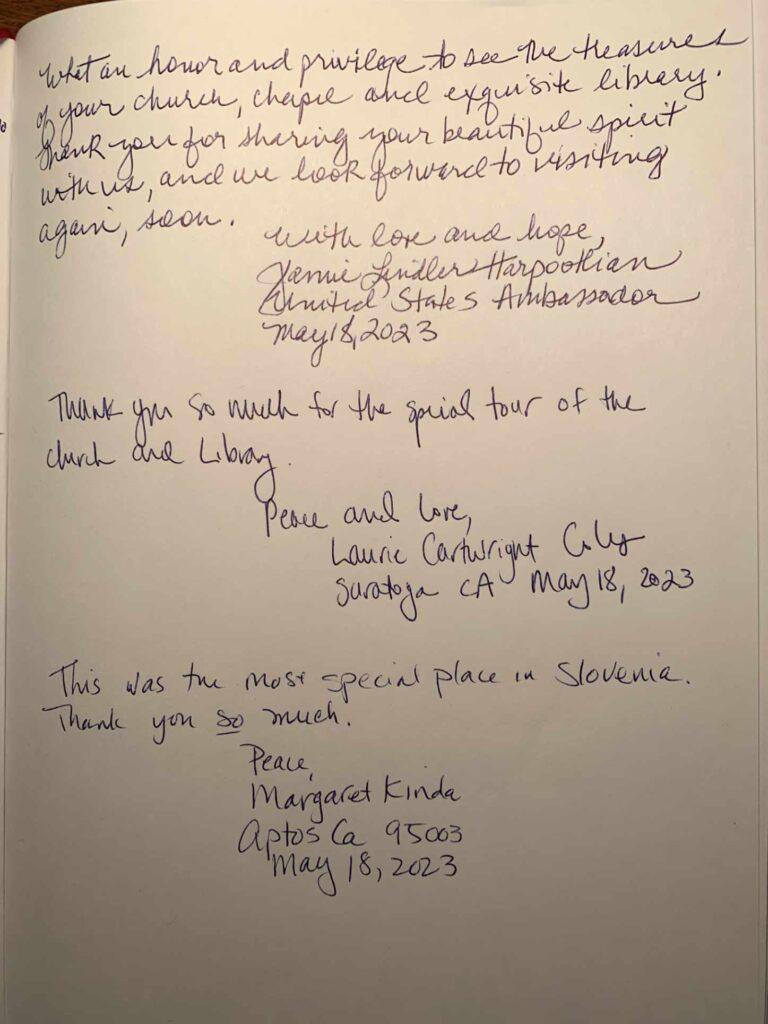 What an honor and privilege to see the treasures
of your church, chapel and exquisite library.
Thank you for sharing your beautiful spirit
with us, and we look forward to visiting
again, soon.
With love and hope,
Jamie Lindler Harpootlian
United States Ambassador
May 18, 2023
Thank you so much for the special tour of the
church and Library.
Peace and Love,
Laurie Cartwright
Saratoga CA May 18, 2023
This was the most special place in Slovenia.
Thank you so much.
Peace,
Margaret Kinda
Aptos Ca 95003
May 18, 2023